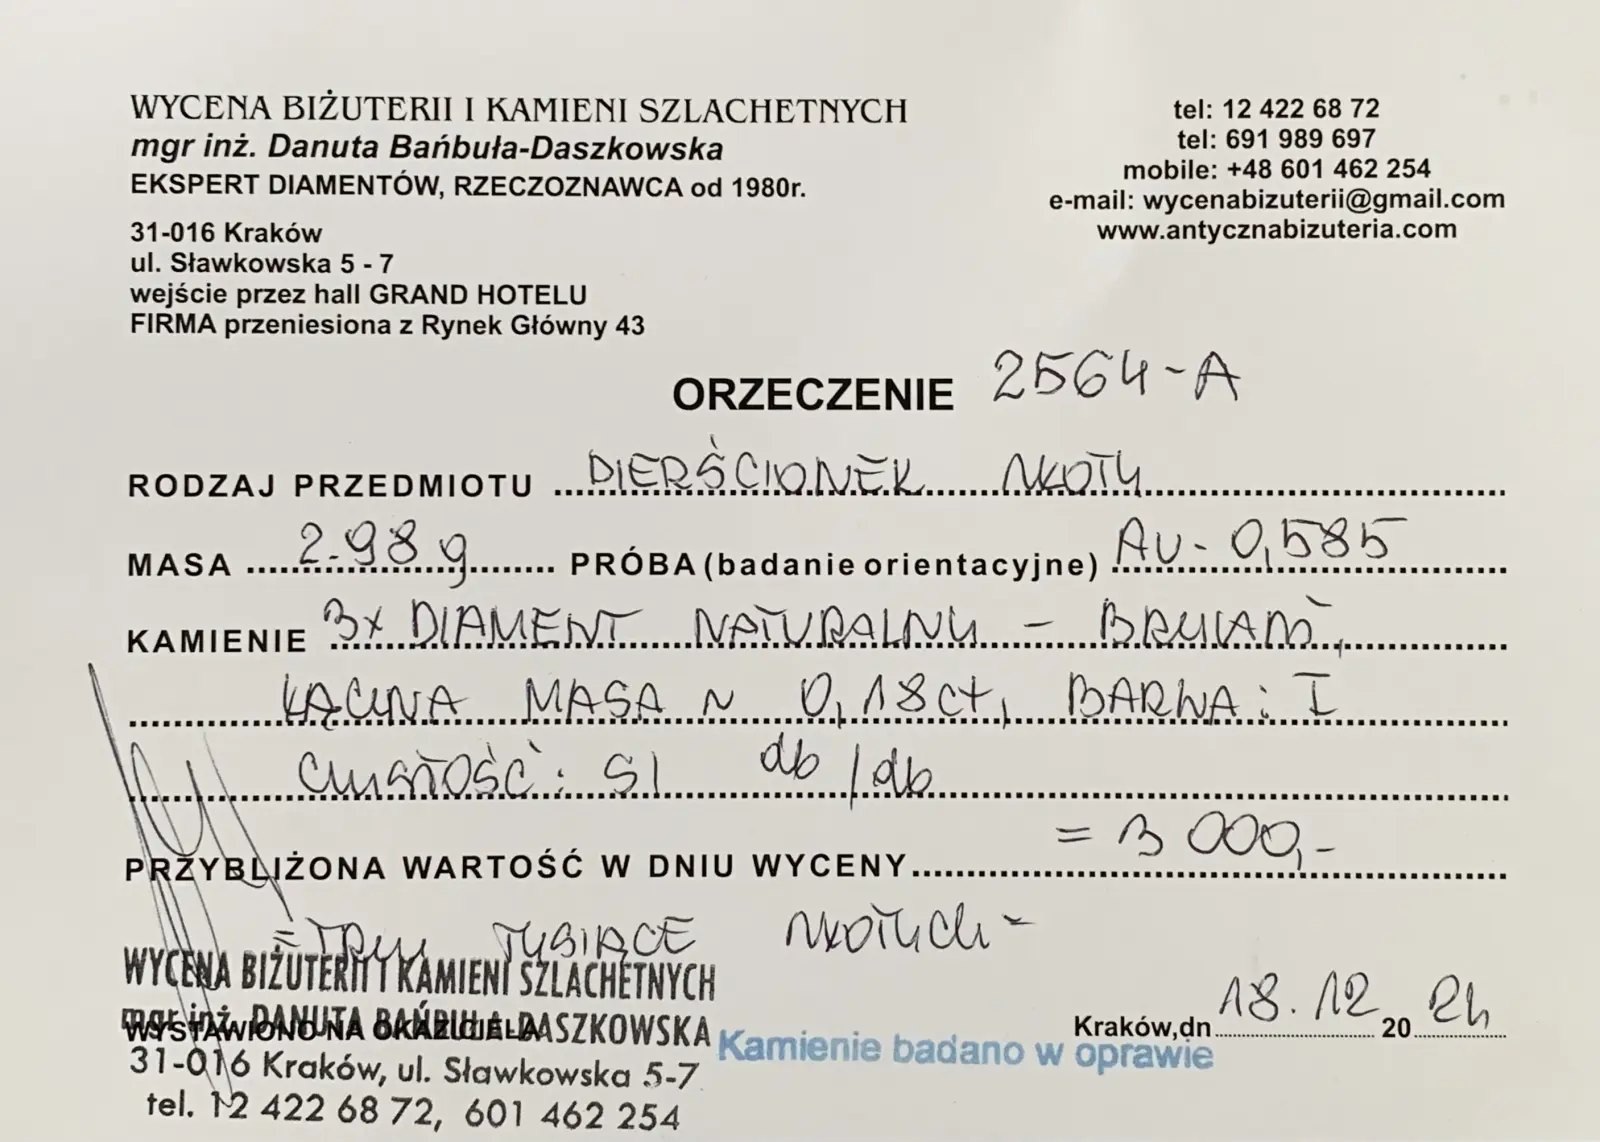 WYCENA BIŻUTERII I KAMIENI SZLACHETNYCH
mgr inż. Danuta Bańbuła-Daszkowska
EKSPERT DIAMENTÓW, RZECZOZNAWCA od 1980r.
31-016 Kraków
ul. Sławkowska 5 - 7
wejście przez hall GRAND HOTELU
FIRMA przeniesiona z Rynek Główny 43
tel: 12 422 68 72
tel: 691 989 697
mobile: +48 601 462 254
e-mail: wycenabizuterii@gmail.com
www.antycznabizuteria.com
ORZECZENIE 2564-A
RODZAJ PRZEDMIOTU PIERŚCIONEK ZŁOTY
MASA 2.98 g PRÓBA (badanie orientacyjne) Au - 0,585
KAMIENIE 3x DIAMENT NATURALNY - BRYLANT,
ŁĄCZNA MASA ~ 0,18 ct, BARWA: I
CZYSTOŚĆ: SI db / db
PRZYBLIŻONA WARTOŚĆ W DNIU WYCENY = 3 000,-
= TRZY TYSIĄCE ZŁOTYCH -
WYCENA BIŻUTERII I KAMIENI SZLACHETNYCH
mgr inż. DANUTA BAŃBUŁA-DASZKOWSKA
WYSTAWIONO NA OKAZICIELA
31-016 Kraków, ul. Sławkowska 5-7
tel. 12 422 68 72, 601 462 254
Kamienie badano w oprawie
Kraków,dn 18.12 20 24